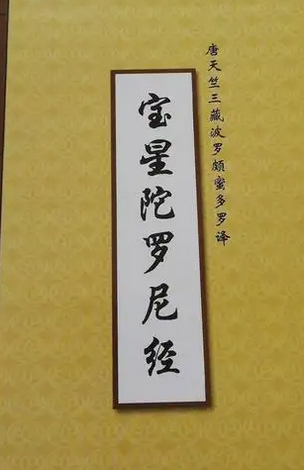 唐天竺三藏波罗颇蜜多罗译
宝星陀罗尼经